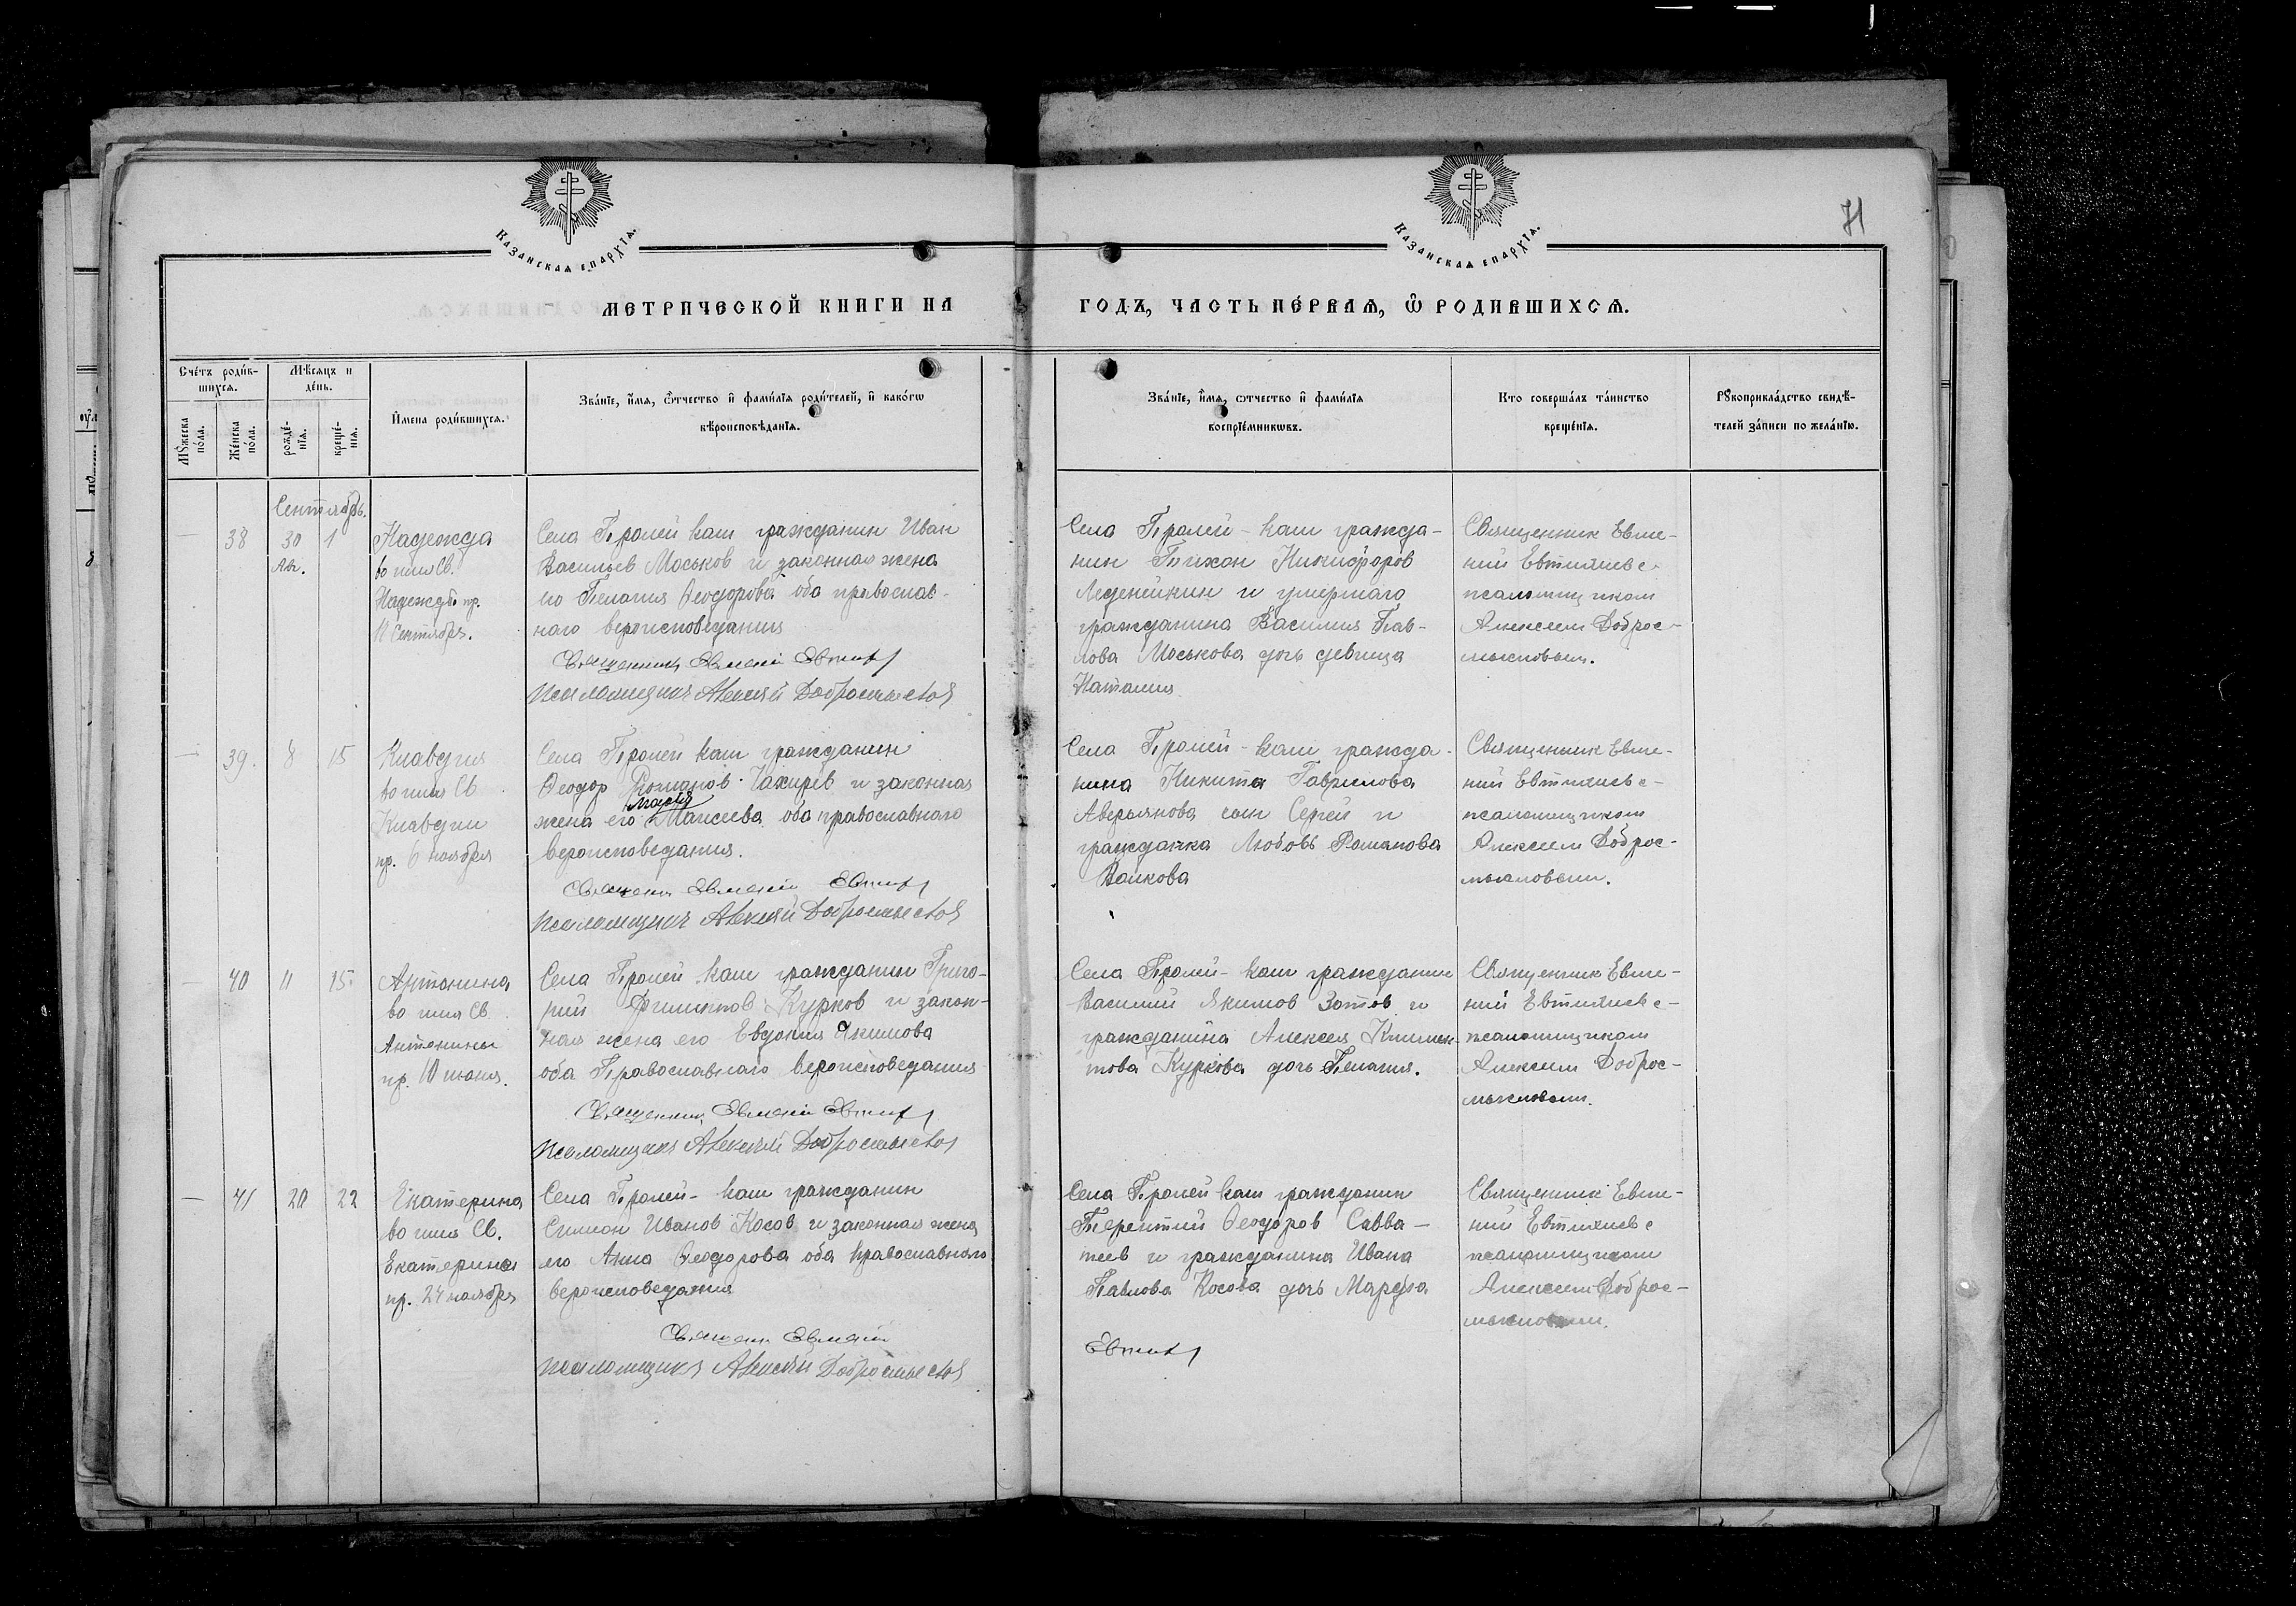 КАЗАНСКАЯ ЕПАРХІЯ.
КАЗАНСКАЯ ЕПАРХІЯ.
71
МЕТРИЧЕСКОЙ КНИГИ НА
ГОДЪ, ЧАСТЬ ПЕ́РВАЯ, Ѿ РОДИВШИХСЯ.
Сче́тъ роди́в-
шихся.
Мѣ́сяцъ и
де́нь.
Мꙋ́жеска
по́ла.
Же́нска
по́ла.
рожде́-
нїя.
креще́-
нїя.
И҆мена роди́вшихся.
Зва́нїе, и҆́мя, ѻ҆́тчество и҆ фами́лїя роди́телей, и҆ како́гѡ
вѣроисповѣ́данїя.
Зва́нїе, и҆́мя, ѻ҆́тчество и҆ фами́лїя
воспрїе́мникѡвъ.
Кто соверша́лъ та́инство
креще́нїя.
Рꙋкоприкла́дство свидѣ́-
телей за́писи по жела́нїю.
Сентябрь.
— 38 30 1
Авг.
Надежда
во имя Св.
Надежды пр.
Сентября.
Села Пролей каш гражданин Иван
Васильев Моськов и законная жена
его Пелагия Феодорова оба православ-
наго вероисповедания
Священник Евмений Евтих
Псаломщик Алексей Добросмыслов
Села Пролей-каш гражда-
нин Тихон Никифоров
Леденейкин и умершаго
гражданина Василия Пав-
лова Моськова дочь девица
Наталия
Священник Евме-
ний Евтихиев с
псаломщиком
Алексеем Доброс-
мысловым.
— 39. 8 15
Клавдия
во имя Св
Клавдии
пр. 6 ноября
Села Пролей каш гражданин
Феодор Романов и законная
Мария
жена его Моисеева оба православнаго
вероисповедания.
Священ Евмений Евтих
Псаломщик Алексей Добросмыслов
Села Пролей-каш гражда-
нина Никита Гаврилова
Аверьянова сын Сергей и
гражданка Любовь Романова
Волкова
Священник Евме-
ний Евтихиев с-
псаломщиком
Алексеем Доброс-
мысловым.
— 40 11 15
Антонина
во имя Св.
Антонины
пр. 10 июня.
Села Пролей каш гражданин Григо-
рий Курков и закон-
ная жена его Евдокия Якимова
оба Православнаго вероисповедания
Священник Евмений Евтих
Псаломщик Алексей Добросмыслов
Села Пролей-каш гражданин
Василий Якимов Зотов и
гражданина Алексея Климен-
това Куркова дочь Пелагия.
Священник Евме-
ний Евтихиев с-
псаломщиком
Алексеем Доброс-
мысловым.
— 41 20 22
Екатерина
во имя Св.
Екатерины
пр. 24 ноября
Села Пролей-каш гражданин
Симион Иванов Косов и законная жена
его Анна Феодорова оба православнаго
вероисповедания
Священ Евмений
Псаломщик Алексей Добросмыслов
Села Пролей каш гражданин
Терентий Феодоров Савва-
теев и гражданина Ивана
Павлова Косова дочь Марфа
Евтих
Священник Евме-
ний Евтихиев с
псаломщиком
Алексеем Доброс-
мысловым.